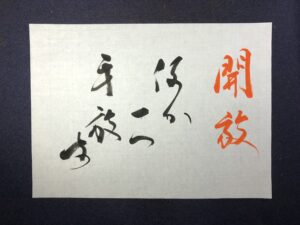 開放
何か
一つ
手放す